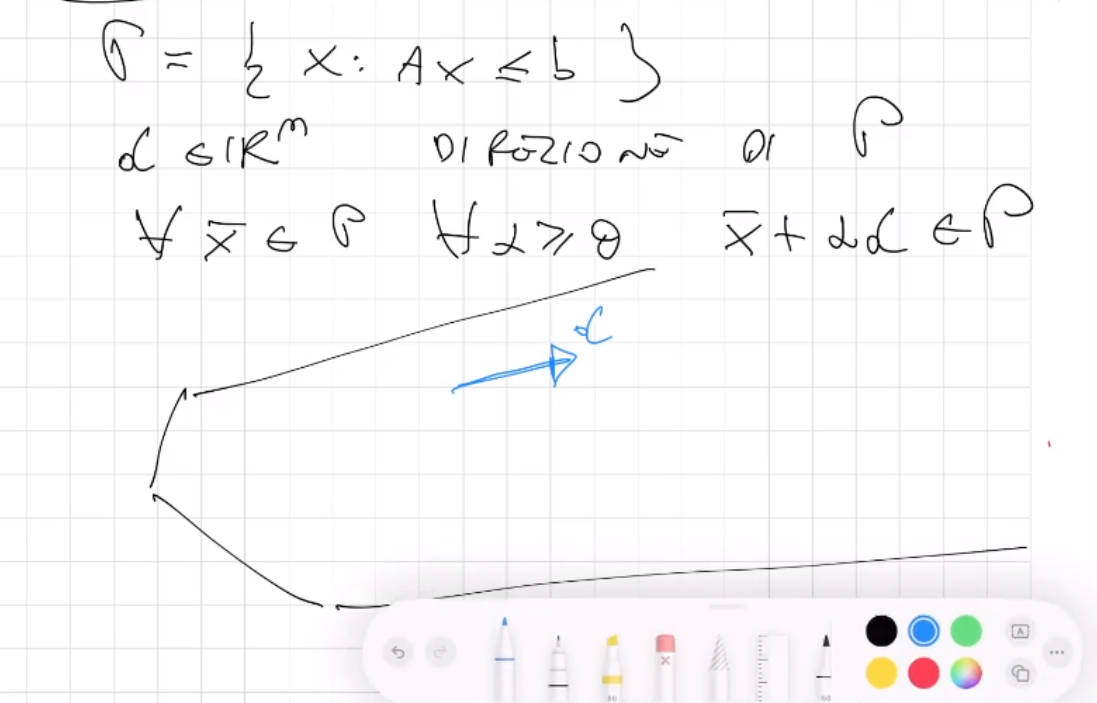 P = { x : Ax ≤ b }
d ∈ ℝⁿ DIREZIONE DI P
∀ x̄ ∈ P ∀ α ≥ 0 x̄ + αd ∈ P
d